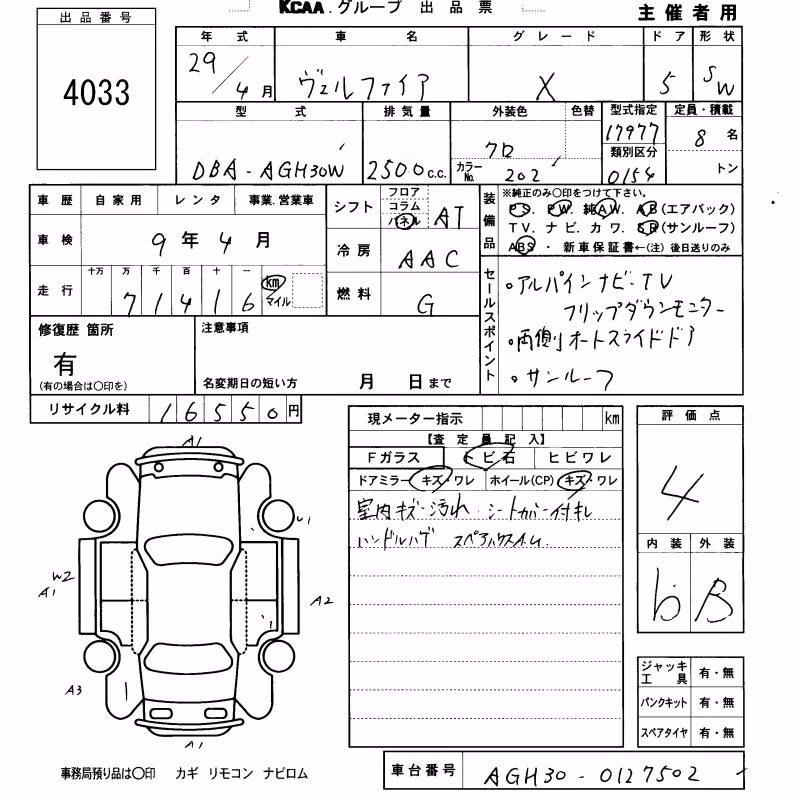 KCAA.グループ 出品票
主催者用
出品番号
4033
年式 車名 グレード ドア 形状
29/4月 ヴェルファイア X 5 SW
型式 排気量 外装色 色替 型式指定 定員・積載
DBA-AGH30W 2500c.c. クロ 17977 8名
カラーNo. 202 類別区分 0154 トン
車歴 自家用 レンタ 事業.営業車
車検 9年4月
走行 十万 万 千 百 十 一
71416 km マイル
シフト フロア コラム パネル AT
冷房 AAC
燃料 G
装備品 ※純正のみ〇印をつけて下さい。
PS. PW. 純AW. AB(エアバック)
TV. ナビ. カワ. SR(サンルーフ)
ABS・新車保証書←(注)後日送りのみ
セールスポイント
・アルパインナビ-TV
フリップダウンモニター
・両側オートスライドドア
・サンルーフ
修復歴 箇所 注意事項
有
(有の場合は〇印を) 名変期日の短い方 月 日まで
リサイクル料 16550円
現メーター指示 km
【査定員記入】
Fガラス トビ石 ヒビワレ
ドアミラー キズ・ワレ ホイール(CP) キズ・ワレ
室内キズ・汚れ シートカバー付キ
ハンドルハゲ
評価点
4
内装 外装
b B
ジャッキ工具 有・無
パンクキット 有・無
スペアタイヤ 有・無
A1
U1
W2
A1
A2
A3
A1
事務局預り品は〇印 カギ リモコン ナビロム
車台番号 AGH30-0127502